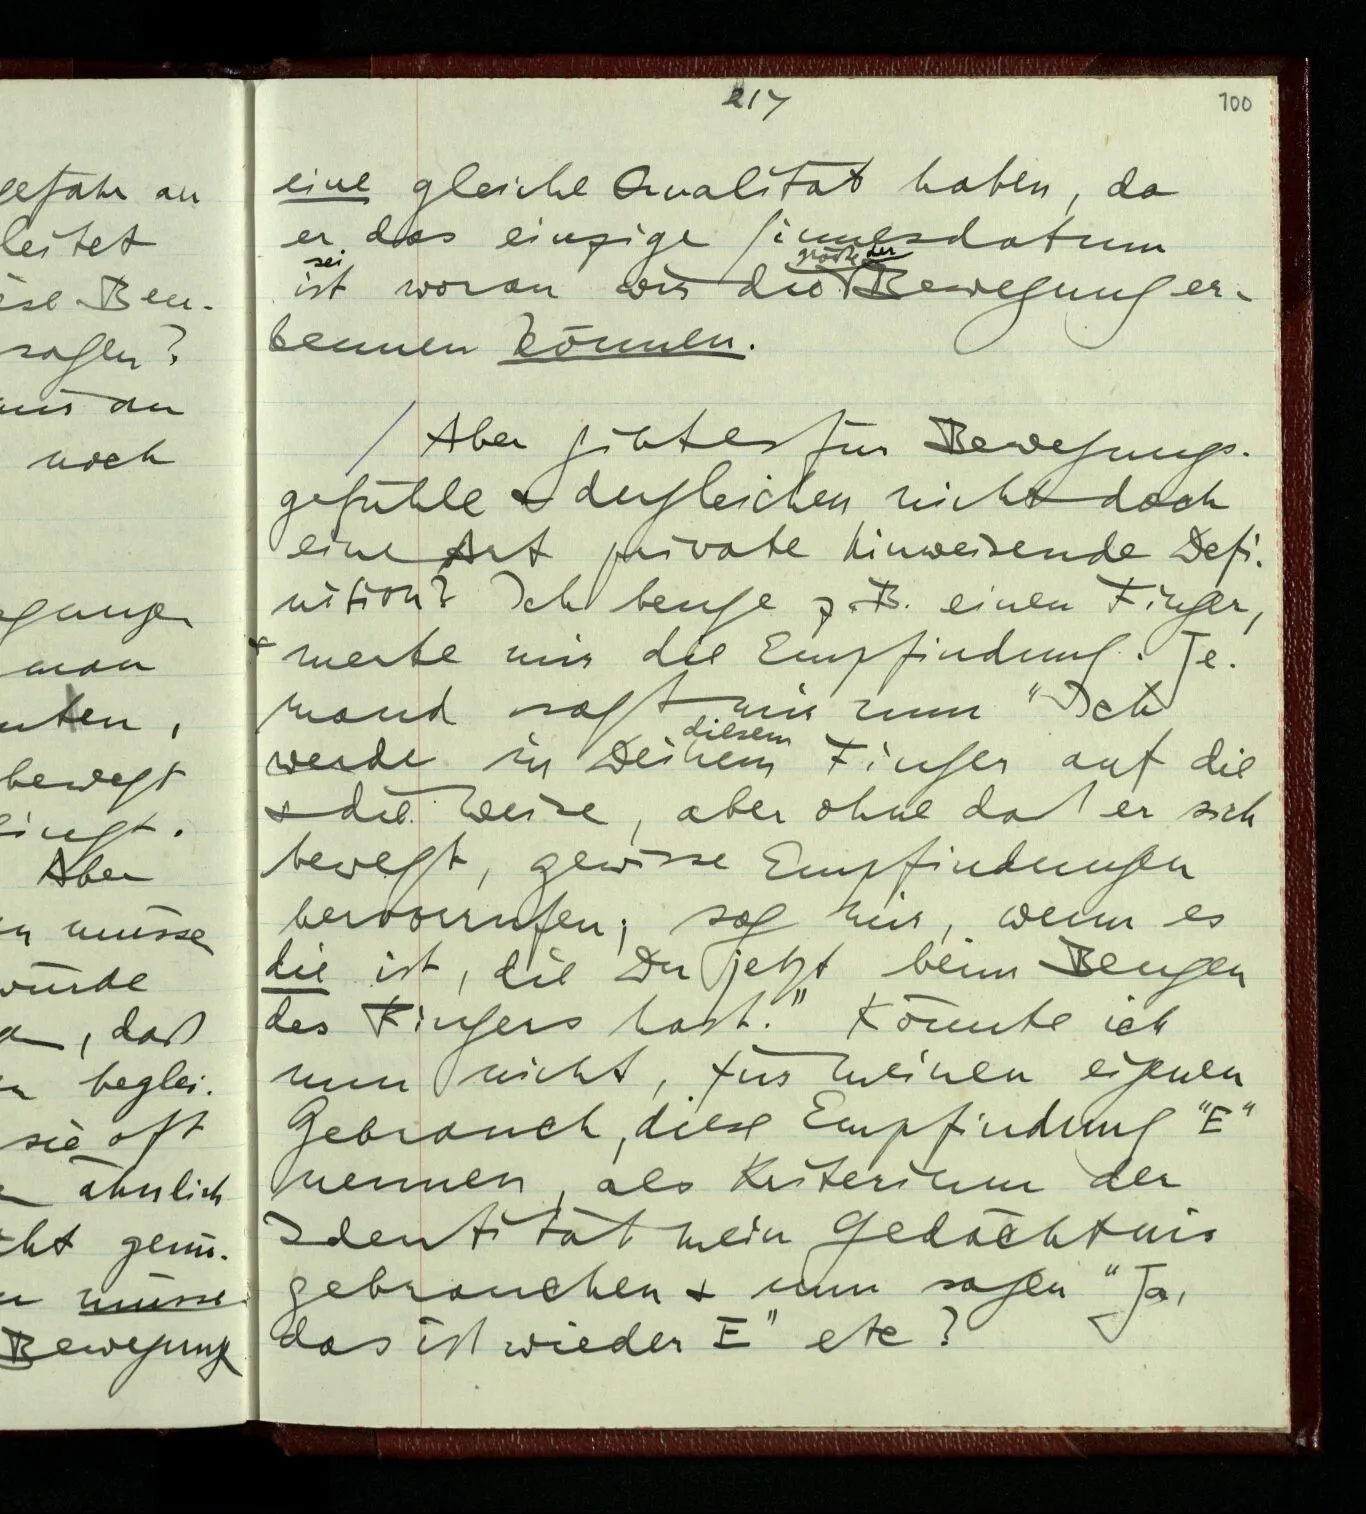 217
100
gefähr an
leitet
ese Bew-
sagen?
uns an
noch
man
bewegt
Aber
müsse
würde
, daß
beglei-
sie oft
ähnlich
genü-
müsse
Bewegung
eine gleiche Qualität haben, da
er das einzige Sinnesdatum
sei größe der
ist woran wir die Bewegung er-
kennen können.
/ Aber gibt es für Bewegungs-
gefühle & dergleichen nicht doch
eine Art private hinweisende Defi-
nition? Ich beuge z.B. einen Finger,
& merke mir die Empfindung. Je-
mand sagt mir nun "Ich
diesem
werde in Deinem Finger auf die
& die Weise, aber ohne daß er sich
bewegt, gewisse Empfindungen
hervorrufen; sag mir, wenn es
die ist, die Du jetzt beim Beugen
des Fingers hast." Könnte ich
nun nicht, für meinen eigenen
Gebrauch, diese Empfindung "E"
nennen, als Kriterium der
Identität mein Gedächtnis
gebrauchen & nun sagen "Ja,
das ist wieder E" etc?